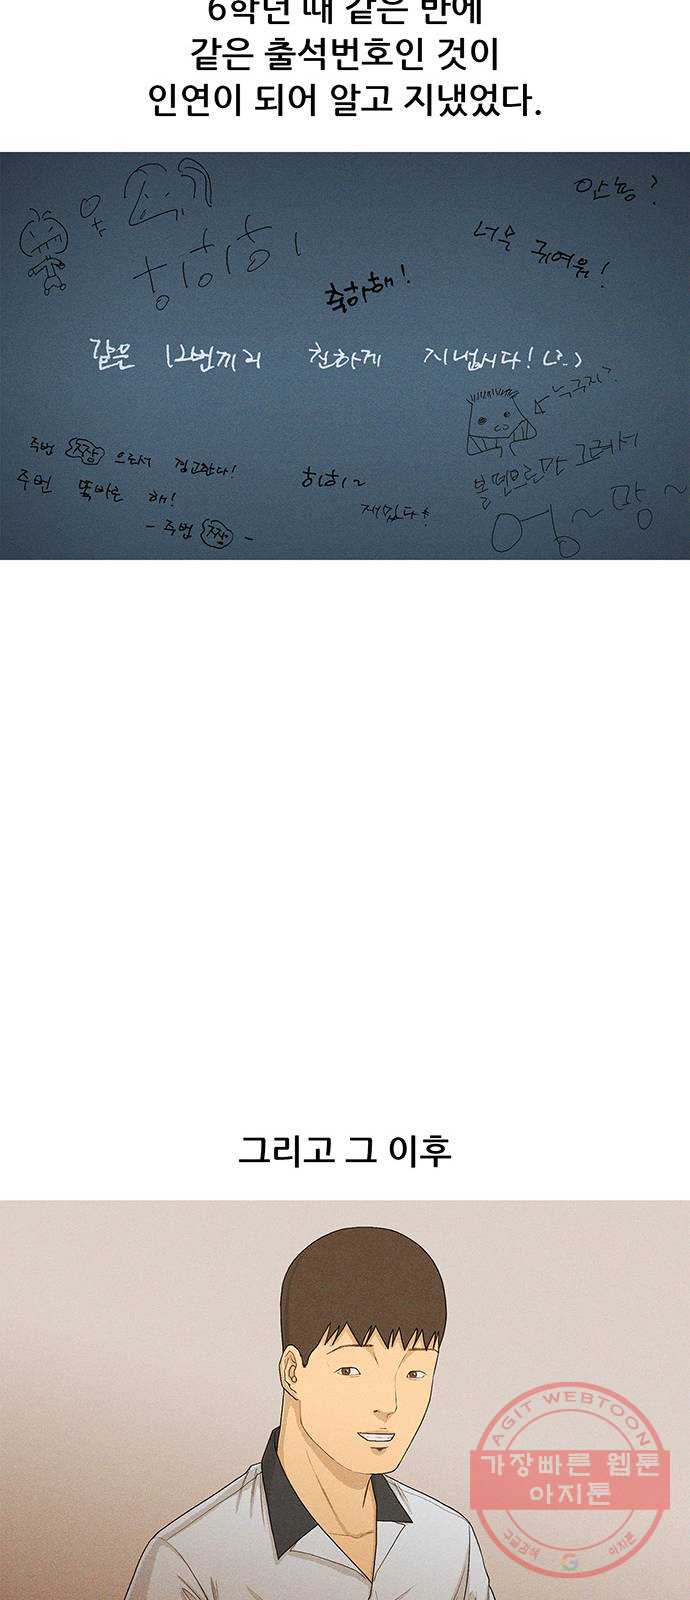 6학년 때 같은 반에
같은 출석번호인 것이
인연이 되어 알고 지냈었다.
안뇽?
너무 귀여워!
히히히히
축하해!
같은 12번끼리 친하게 지냅시다!
누구지?
주번 짱 으로서 경고한다!
주번 똑바로 해!
- 주번 짱 -
히히
재밌다
볼펜으로만 그려서
엉~망~
그리고 그 이후
AGIT WEBTOON
가장빠른 웹툰
아지툰
구글검색 G 아지툰